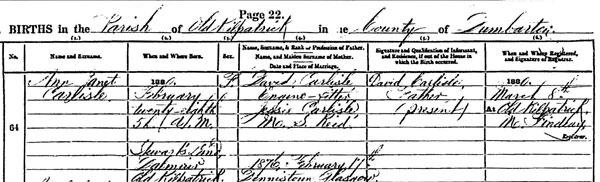 Page 22.
BIRTHS in the Parish of Old Kilpatrick in the County of Dumbarton
No. Name and Surname. When and Where Born. Sex. Name, Surname, & Rank or Profession of Father. Name, and Maiden Surname of Mother. Date and Place of Marriage. Signature and Qualification of Informant, and Residence, if out of the House in which the Birth occurred. When and Where Registered, and Signature of Registrar.
64
Ann Janet
Carlisle
1886.
February
twenty eighth
5h. A.M.
Dalmuir
Old Kilpatrick
F.
David Carlisle
Engine fitter
Jessie Carlisle
M.S. Reid
1876. February 17th
Dennistoun Glasgow.
David Carlisle
Father
(present)
1886.
March 8th
At Old Kilpatrick
Findlay
Registrar.